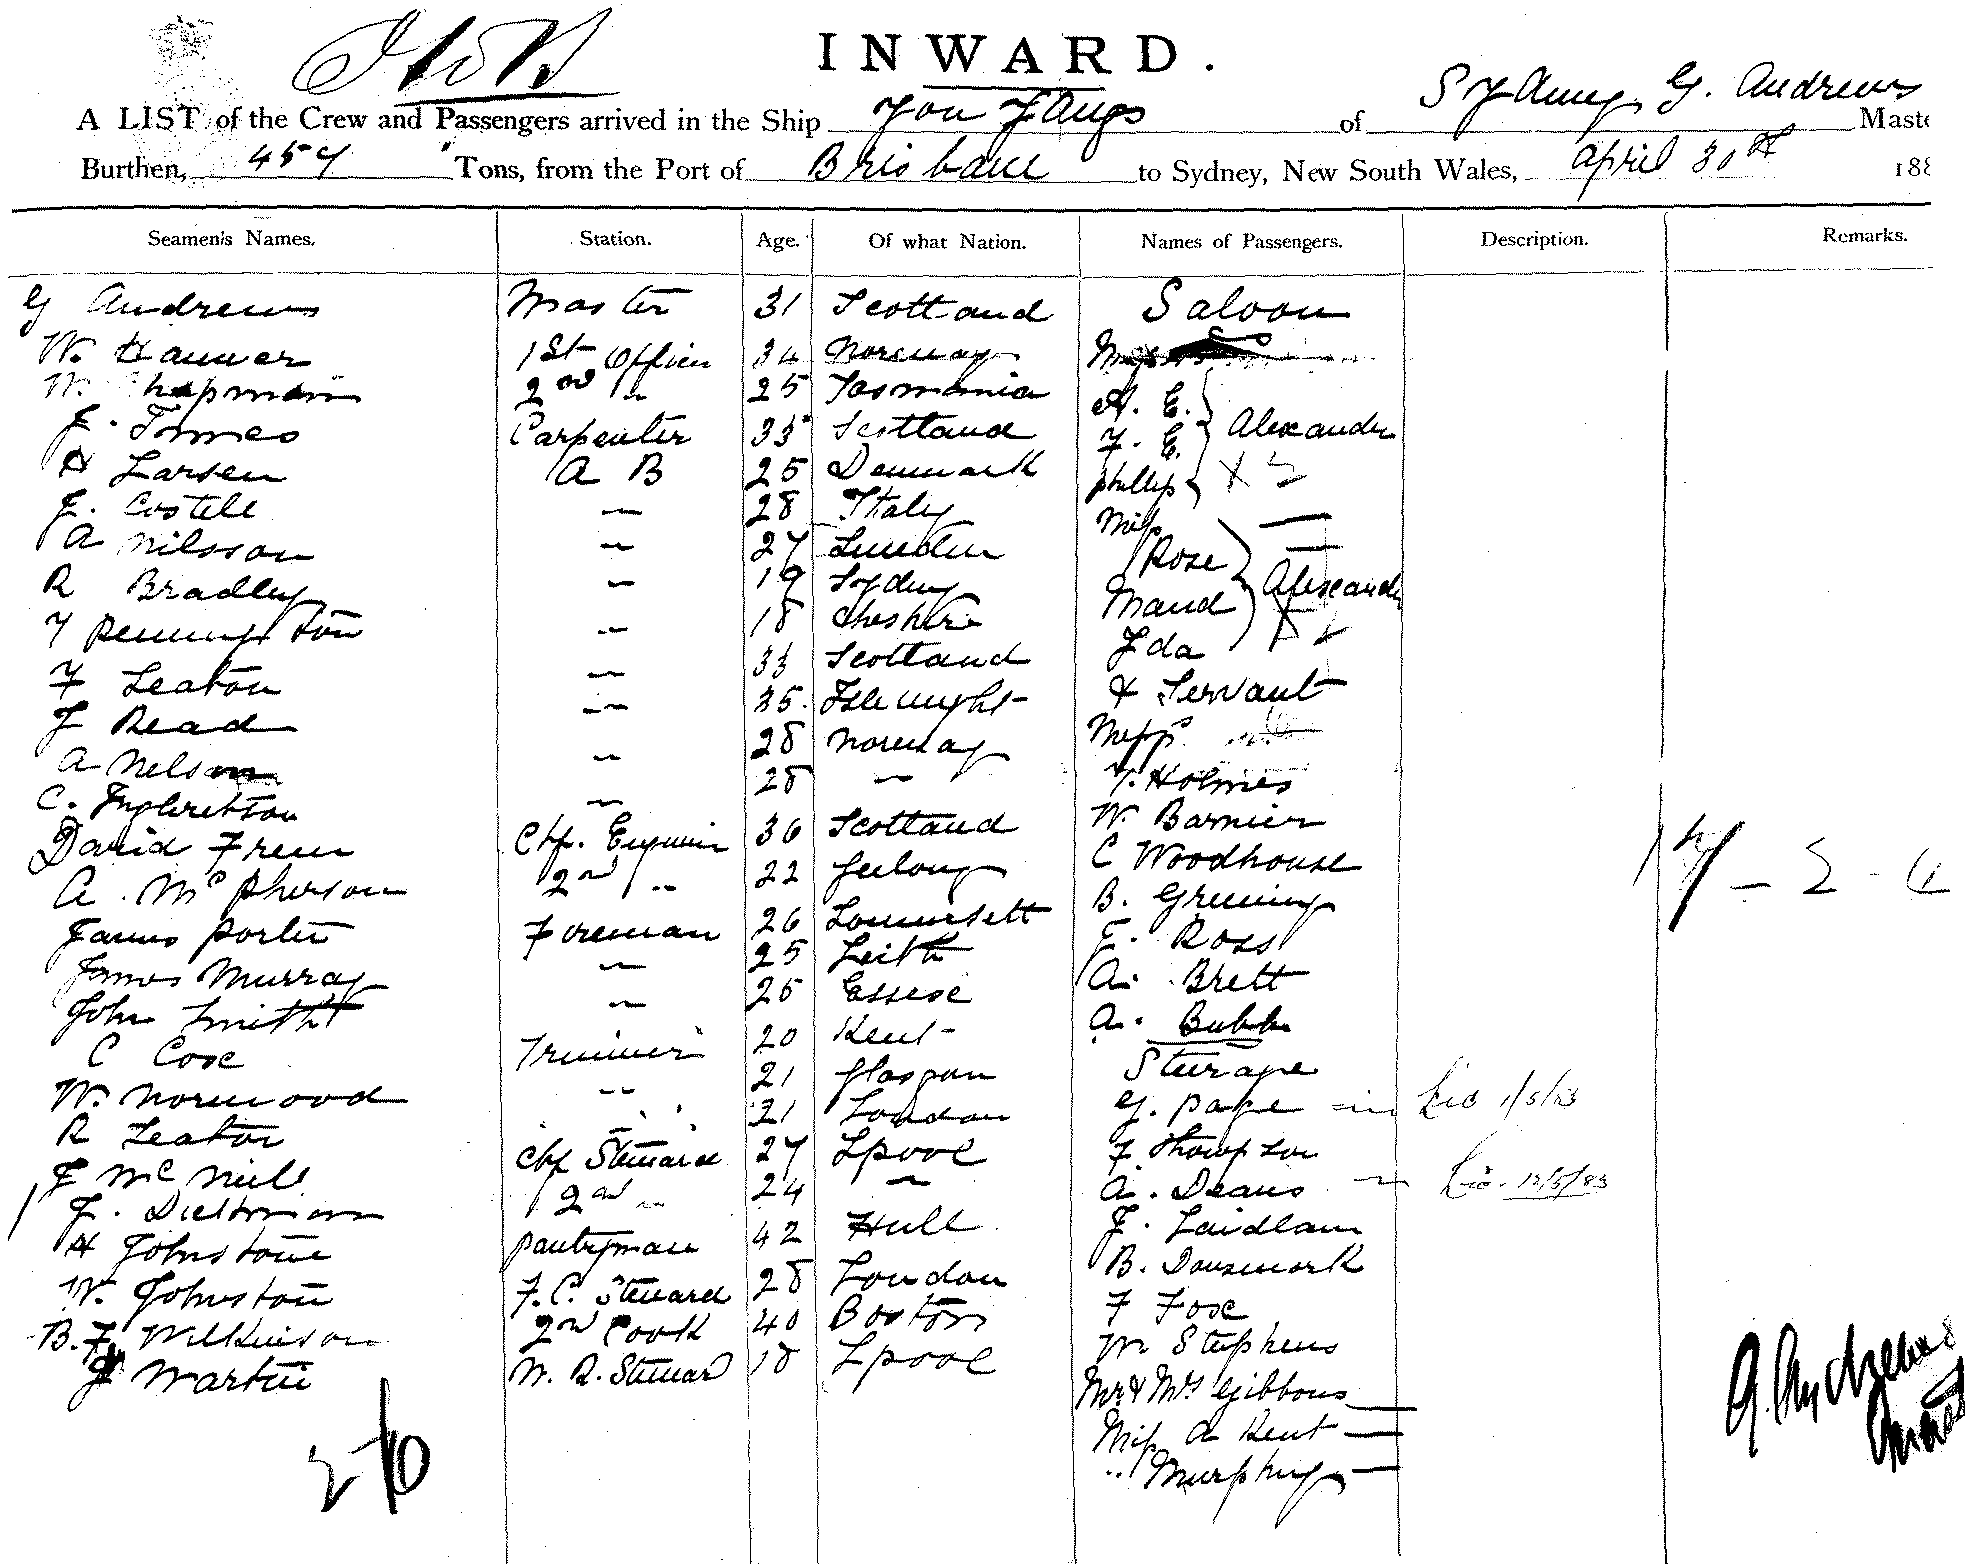 INWARD.
A LIST of the Crew and Passengers arrived in the Ship You Yangs of Sydney, G. Andrews Maste
Burthen, 457 Tons, from the Port of Brisbane to Sydney, New South Wales, April 30th 188
Seamen's Names. Station. Age. Of what Nation. Names of Passengers. Description. Remarks.
G Andrews Master 31 Scotland Saloon
W. 1st Officer 34 Norway
W. Chapman 2nd " 25 Tasmania A. E.
J. Carpenter 33 Scotland F. E. Alexander
H Larsen A B 25 Denmark Phillip
J. Costell " 28 Italy Miss
A Nilsson " 27 Sweden Rose
R Bradley " 19 Sydney Maud Alexander
T Pennington " 18 Cheshire Ida
F Leaton " 33 Scotland & Servant
J Read " 35 Isle Wight Messrs
A Nelson " 28 Norway T. Holmes
C. " 28 " W. Barnier
David Frew Chf. Engineer 36 Scotland C Woodhouse
A. McPherson 2nd " 22 Geelong B. Greening
James Porter Foreman 26 Sommersett E. Ross
James Murray " 25 Leith A. Brett
John Smith " 25 Essex A. Bubb
C Cox Trimmer 20 Kent Steerage
W. Norwood " 21 Glasgow G. Page 1/5/83
R Leator " 21 London F Thompson
J McNeill Chf Steward 27 Lpool A. Deans 12/5/83
J. Dieltman 2nd " 24 " J. Laidlaw
H Johnstone Pantryman 42 Hull B. Dousmark
W. Johnston F.C. Steward 28 London F Fox
B.F Wilkinson 2nd Cook 40 Boston M Stephens
J Martin M. R. Steward 18 Lpool Mr & Mrs Gibbons
Miss A Kent
" Murphy
G. Andrews